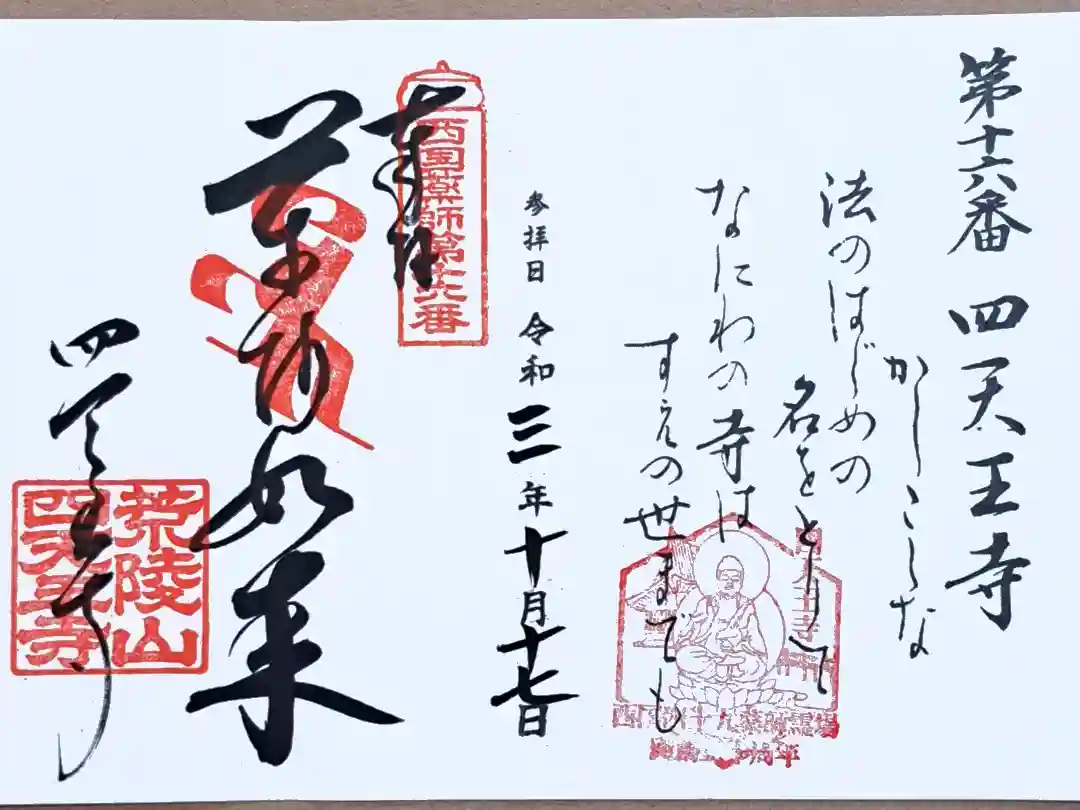 第十六番 四天王寺
法のはじめの
かしこくな
名をとりて
なにわの寺は
すゑの世までも
参拝日 令和三年十月十七日
奉拝
西国薬師第十六番
薬師如来
四天王寺
荒陵山
四天王寺